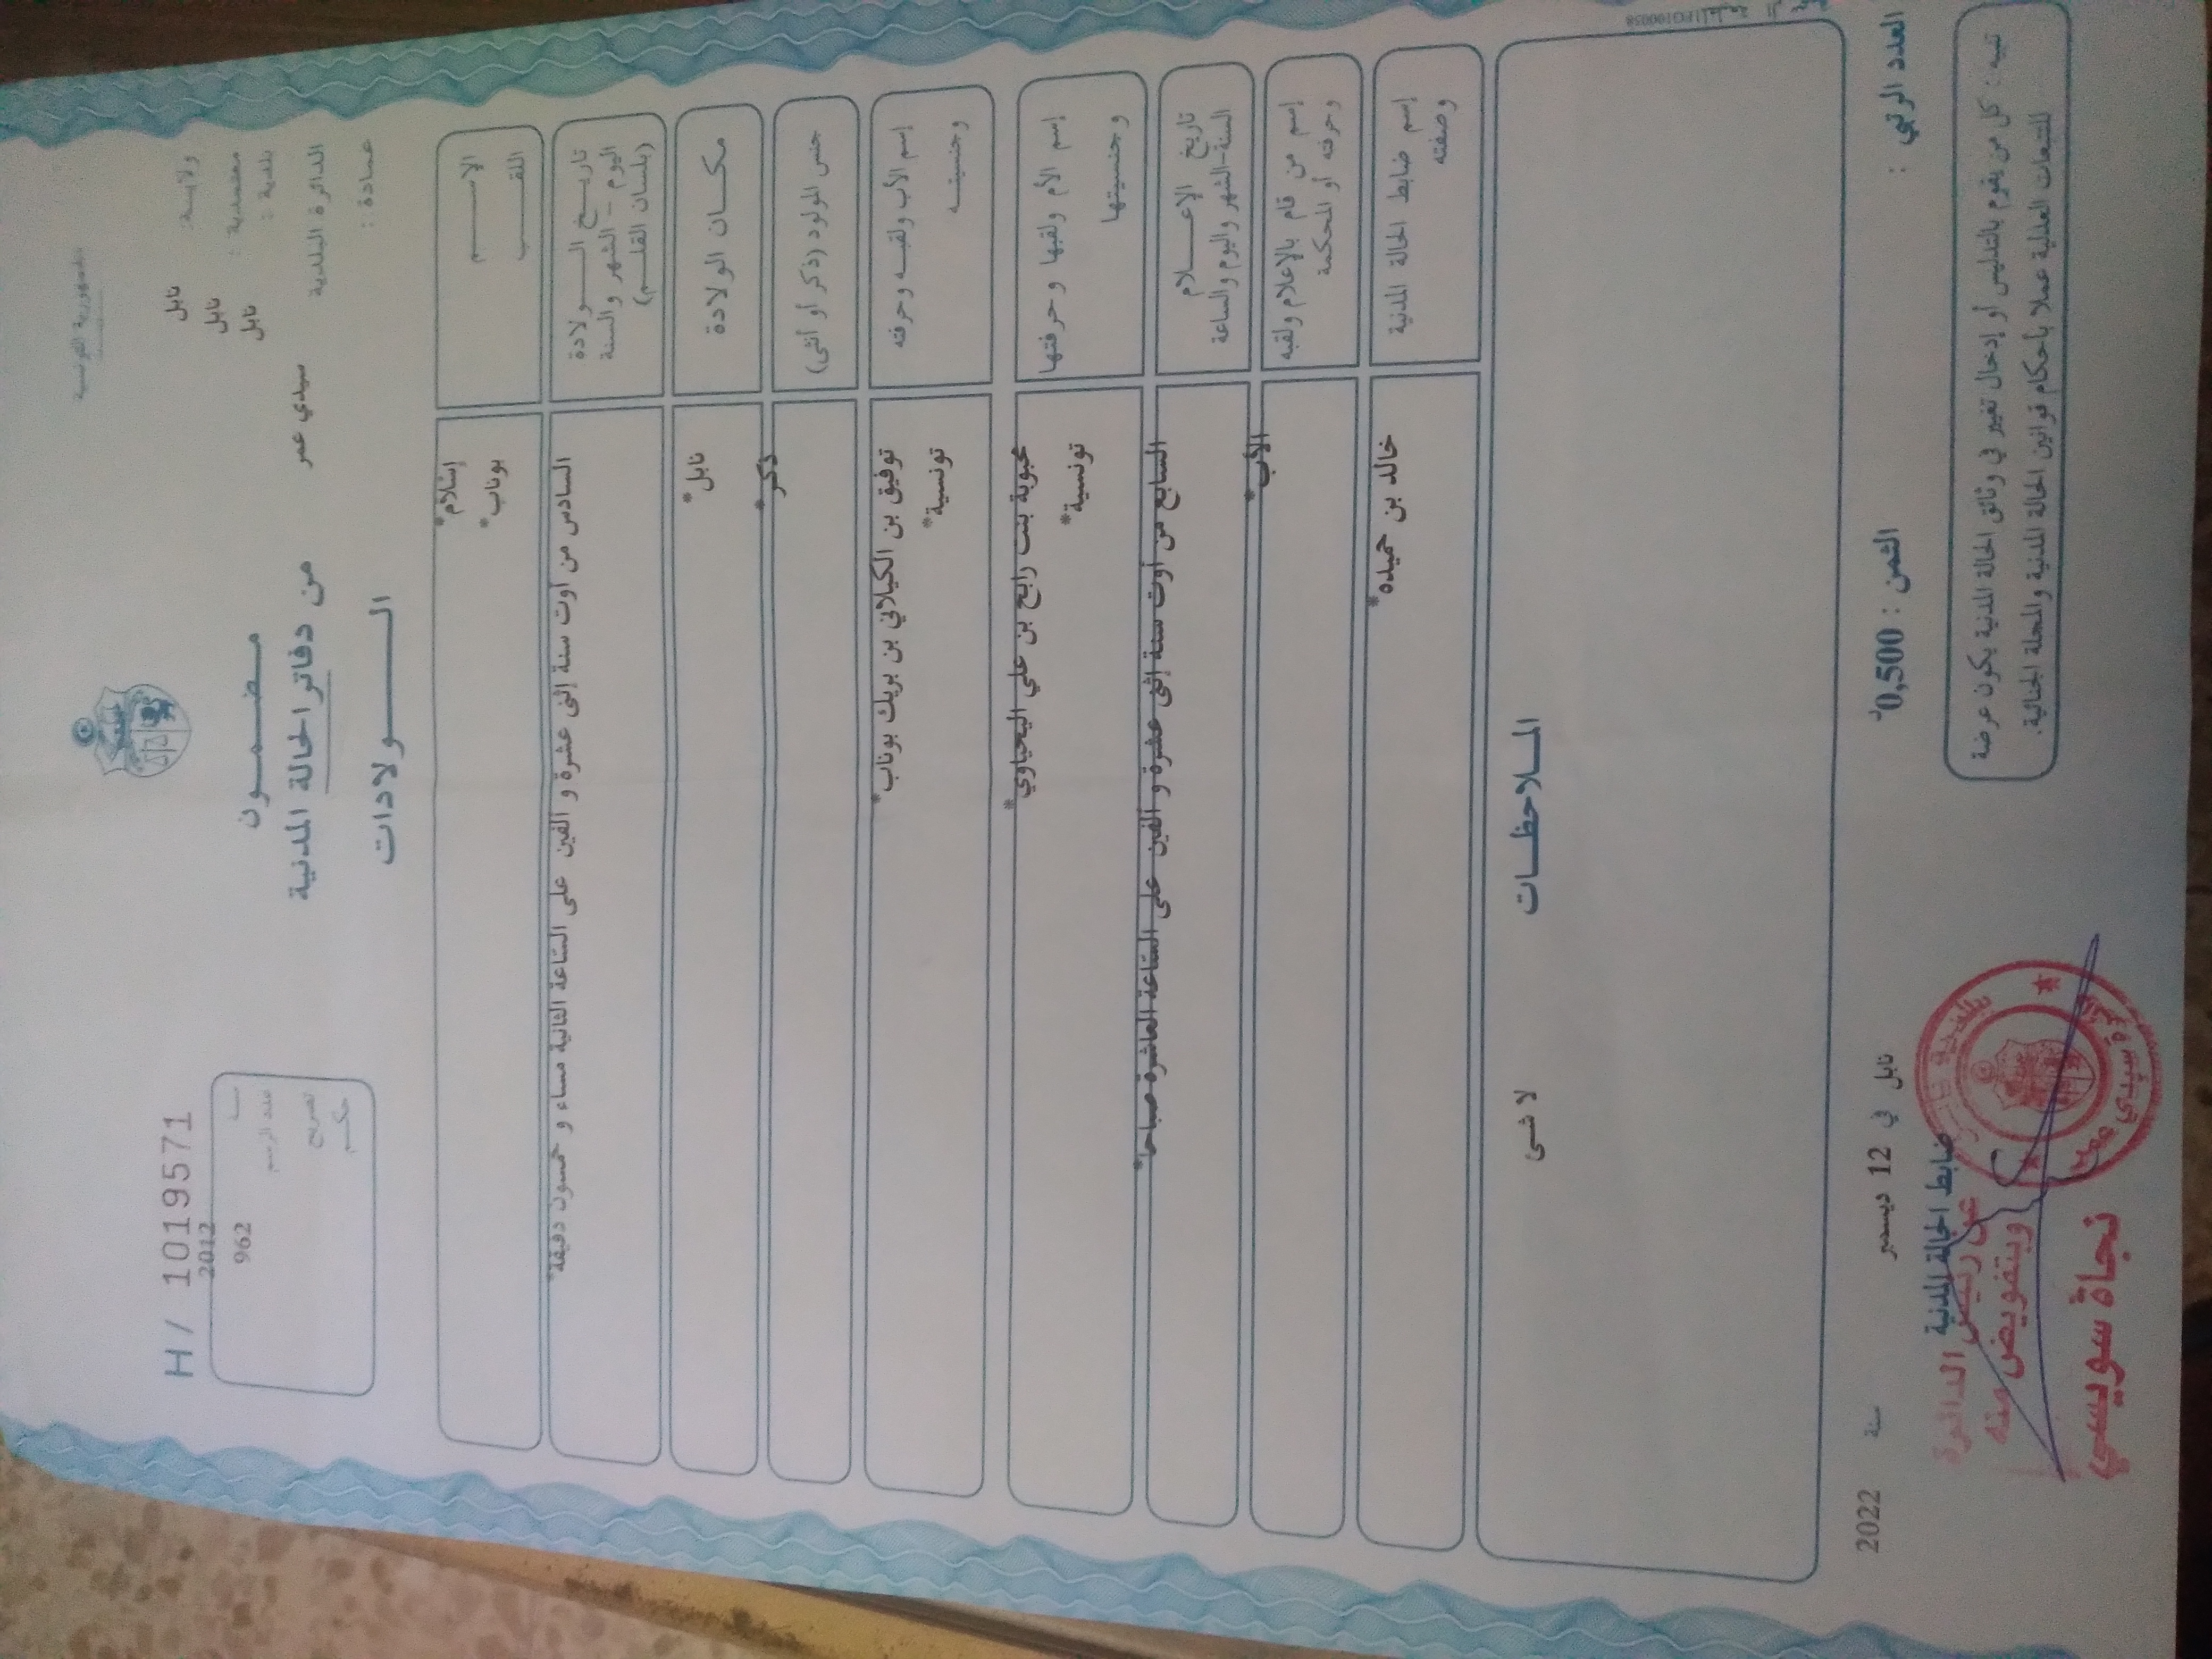 الجمهورية التونسية
ولايـة: نابل
معتمدية : نابل
بلدية : نابل
الدائرة البلدية سيدي عمر
عمادة :
H/ 1019571
2012
962
عدد الرسم
تصريح
حكم
مـضـمـون
من دفاتر الحالة المدنية
الـولادات
الإسـم
اللقـب
إسلام*
بوناب*
تاريـخ الـولادة
اليوم - الشهر والسنة
(بلسان القلـم)
السادس من أوت سنة إثنى عشرة و ألفين على الساعة الثانية مساء و خمسون دقيقة*
مكـان الولادة
نابل*
جنس المولود (ذكر أو أنثى)
ذكر*
إسم الأب ولقبـه وحرفته
وجنسيتـه
توفيق بن الكيلاني بن بريك بوناب*
تونسية*
إسم الأم ولقبها وحرفتها
وجنسيتها
محبوبة بنت رابح بن علي اليحياوي*
تونسية*
تاريخ الإعـلام
السنة-الشهر واليوم والساعة
السابع من أوت سنة إثنى عشرة و ألفين على الساعة العاشرة صباحا*
إسم من قام بالإعلام ولقبه
وحرفته أو المحكمة
الأب*
إسم ضابط الحالة المدنية
وصفته
خالد بن حميده*
المـلاحظـات
لا شئ
العدد الرتبي :
الثمن : 0,500د
نابل في 12 ديسمبر سنة 2022
تنبيه : كل من يقوم بالتدليس أو إدخال تغيير في وثائق الحالة المدنية يكون عرضة
للتتبعات العدلية عملا بأحكام قوانين الحالة المدنية والمجلة الجنائية.
ضابط الحالة المدنية
عن رئيس الدائرة
وبتفويض منه
نجاة سويسي